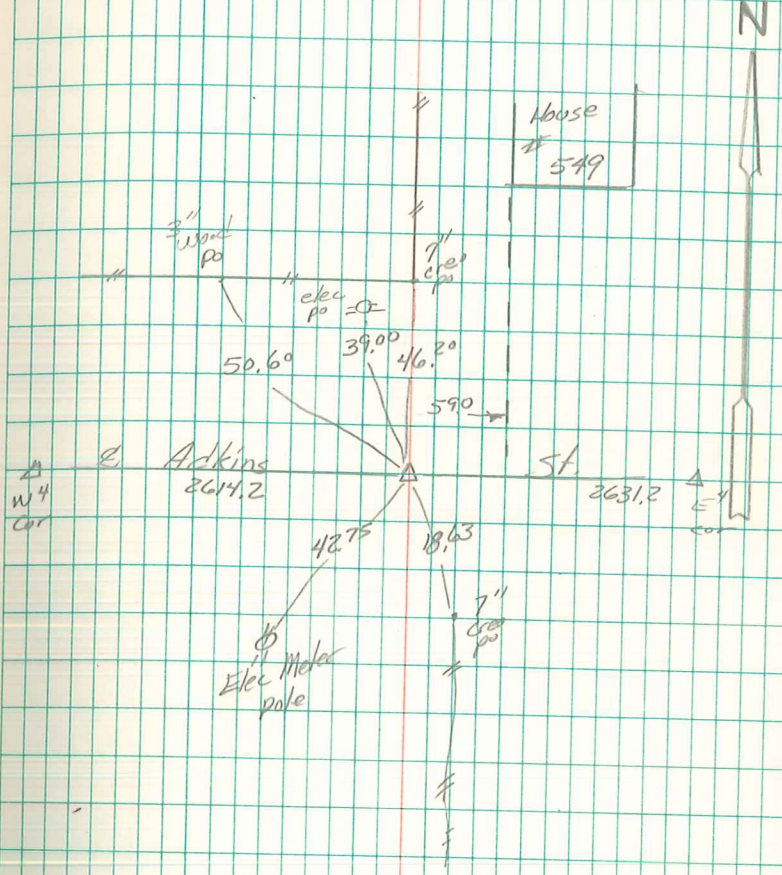 N
House
# 549
3"
wood
po
7"
creo
po
elec
po
50.60
39.00
46.20
590
℄ Adkins St.
2614.2
2631.2
W 4
Cor
E 4
cor
42.75
18.63
7"
creo
po
Elec Meter
pole